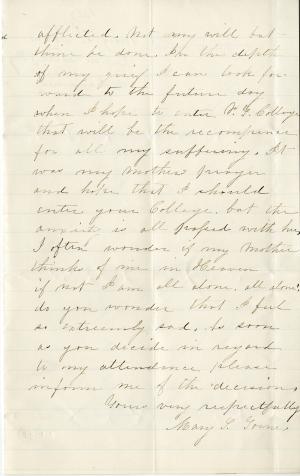 afflicted. Not my will but
thine be done. In the depth
of my grief I can look for
ward to the future day
when I hope to enter V. F. College
that will be the recompense
for all my suffering. It
was my Mothers prayer
and hope that I should
enter your College. but the
anxiety is all passed with her,
I often wonder if my Mother
thinks of me in Heaven
if not I am all alone. all alone.
do you wonder that I feel
so extremely sad. As soon
as you decide in regard
to my attendance please
inform me of the decision.
Yours very respectfully
Mary S.